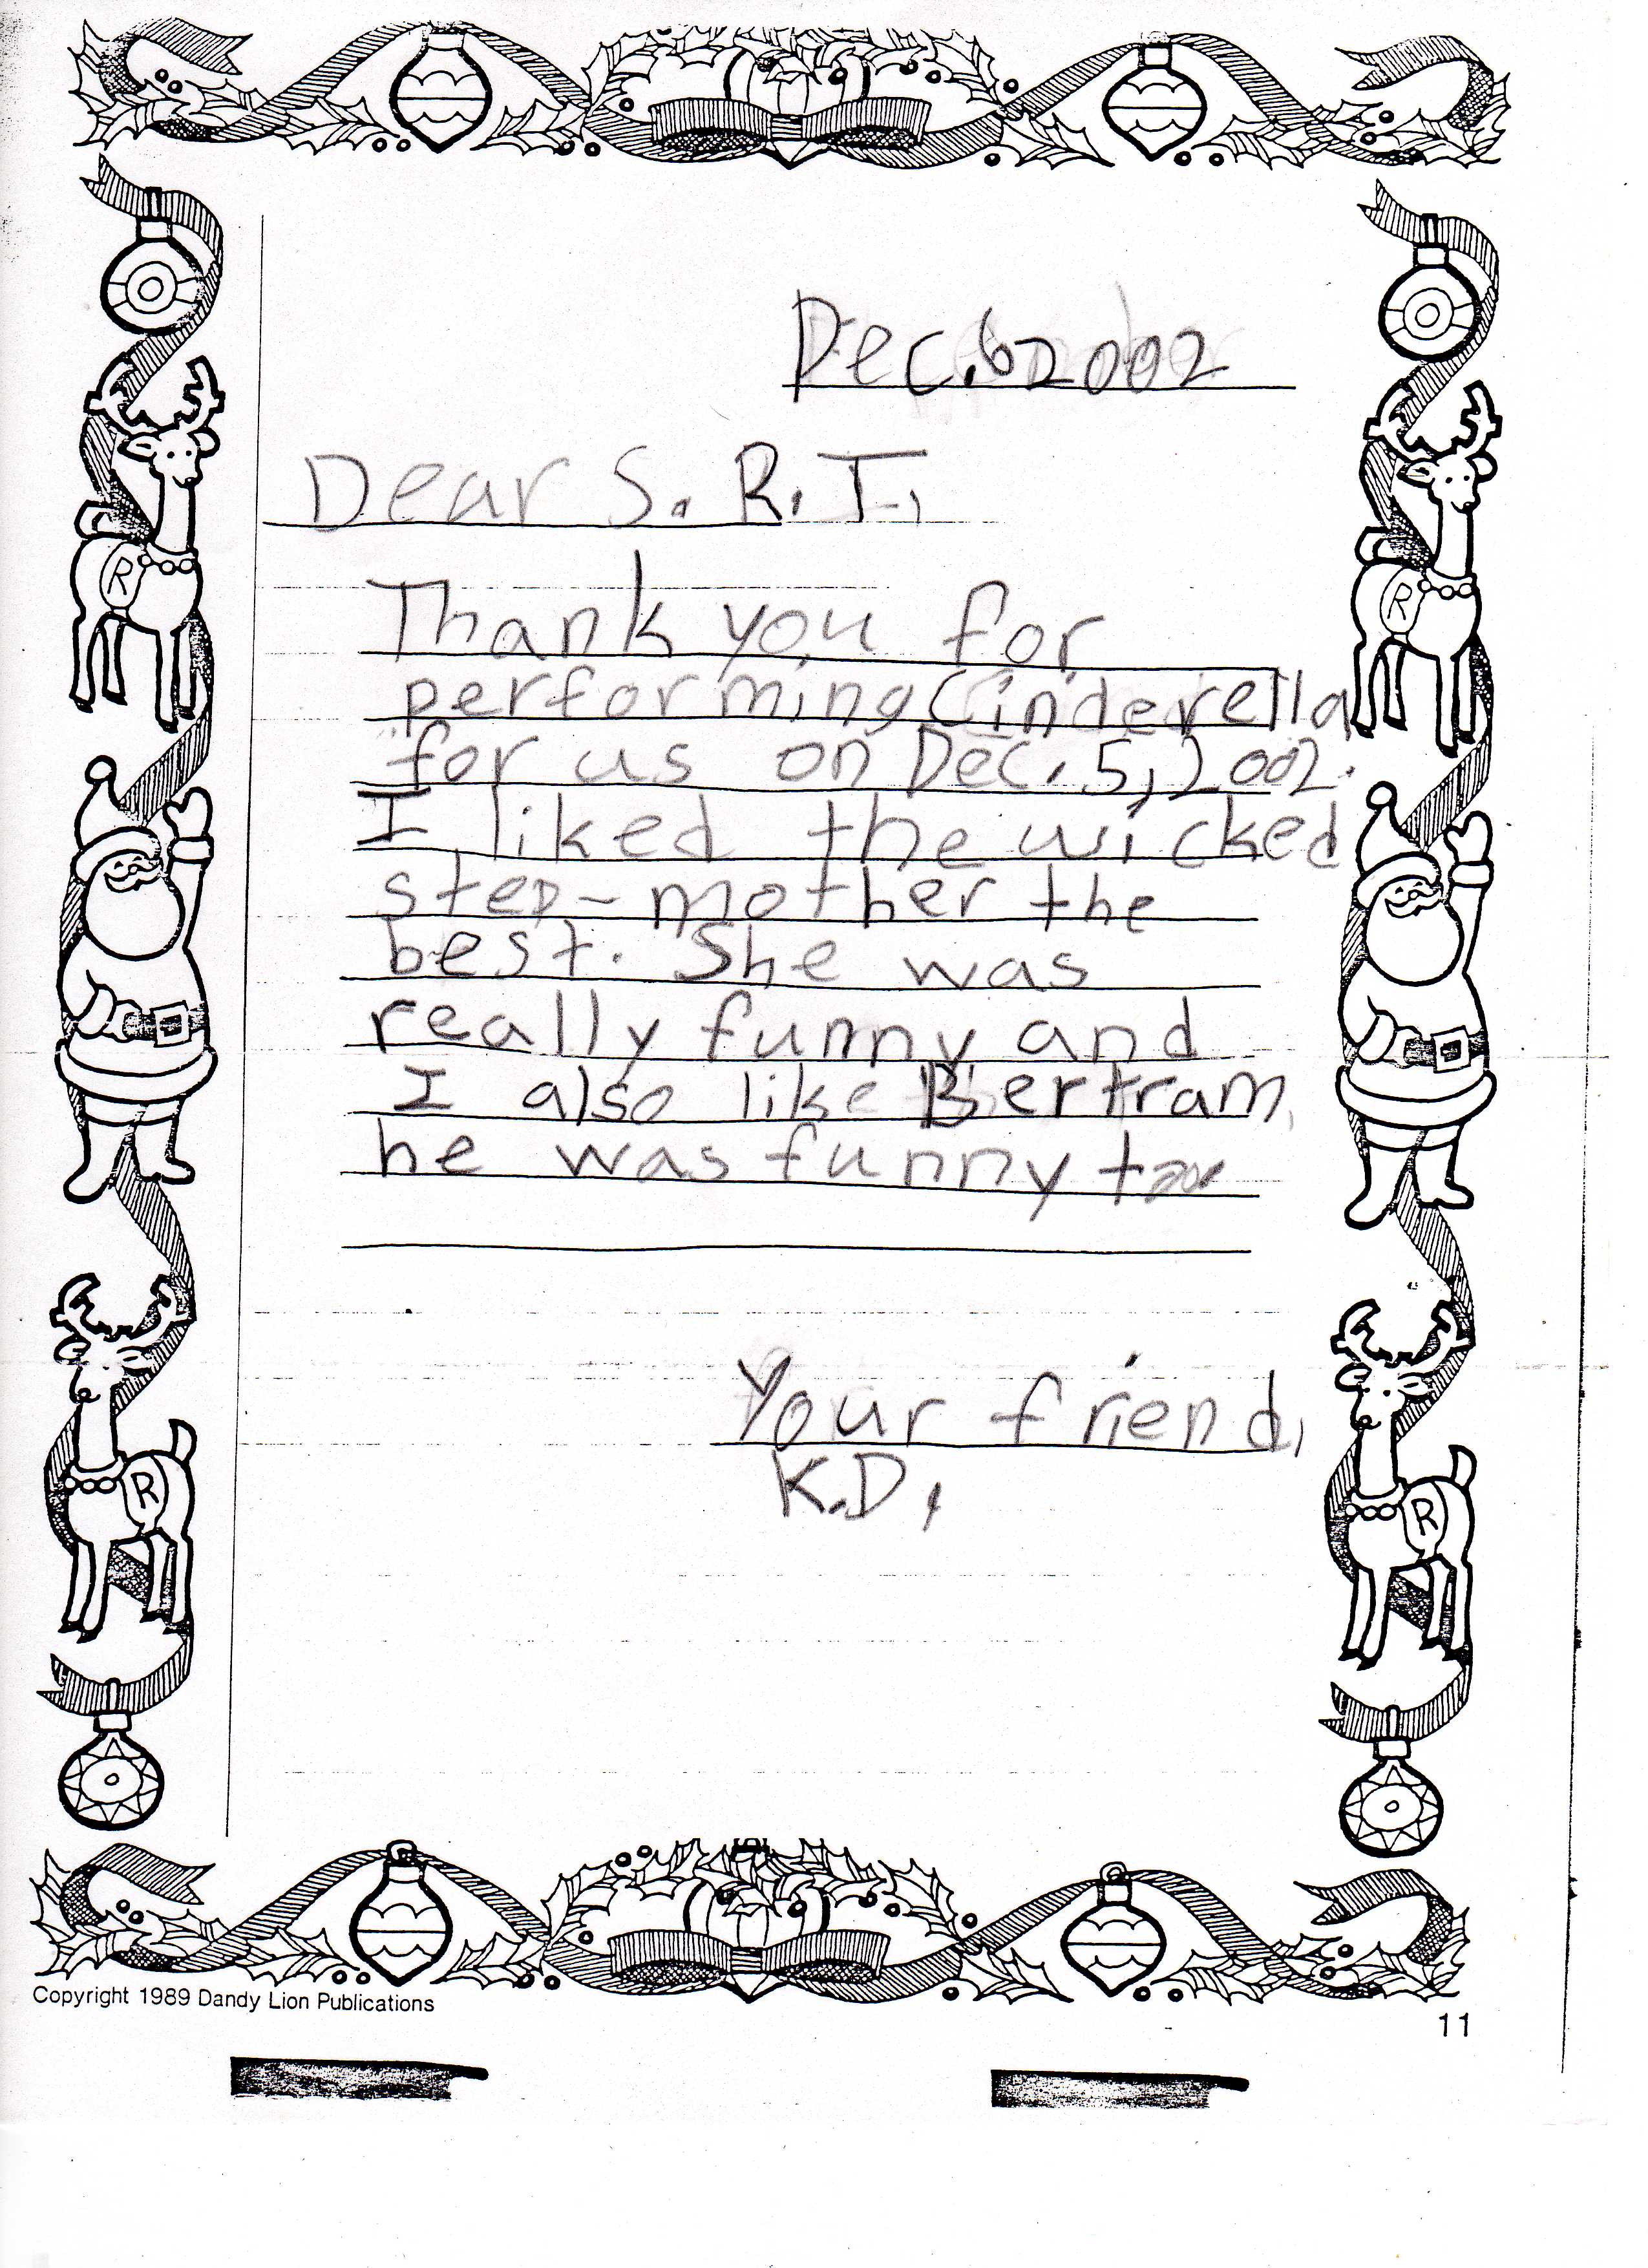 Dec. 6 2002
Dear S. R. T.,
Thank you for
performing Cinderella
for us on Dec. 5, 2002.
I liked the wicked
step-mother the
best. She was
really funny and
I also like Bertram,
he was funny too
Your friend,
K.D.
R
R
R
R
Copyright 1989 Dandy Lion Publications
11